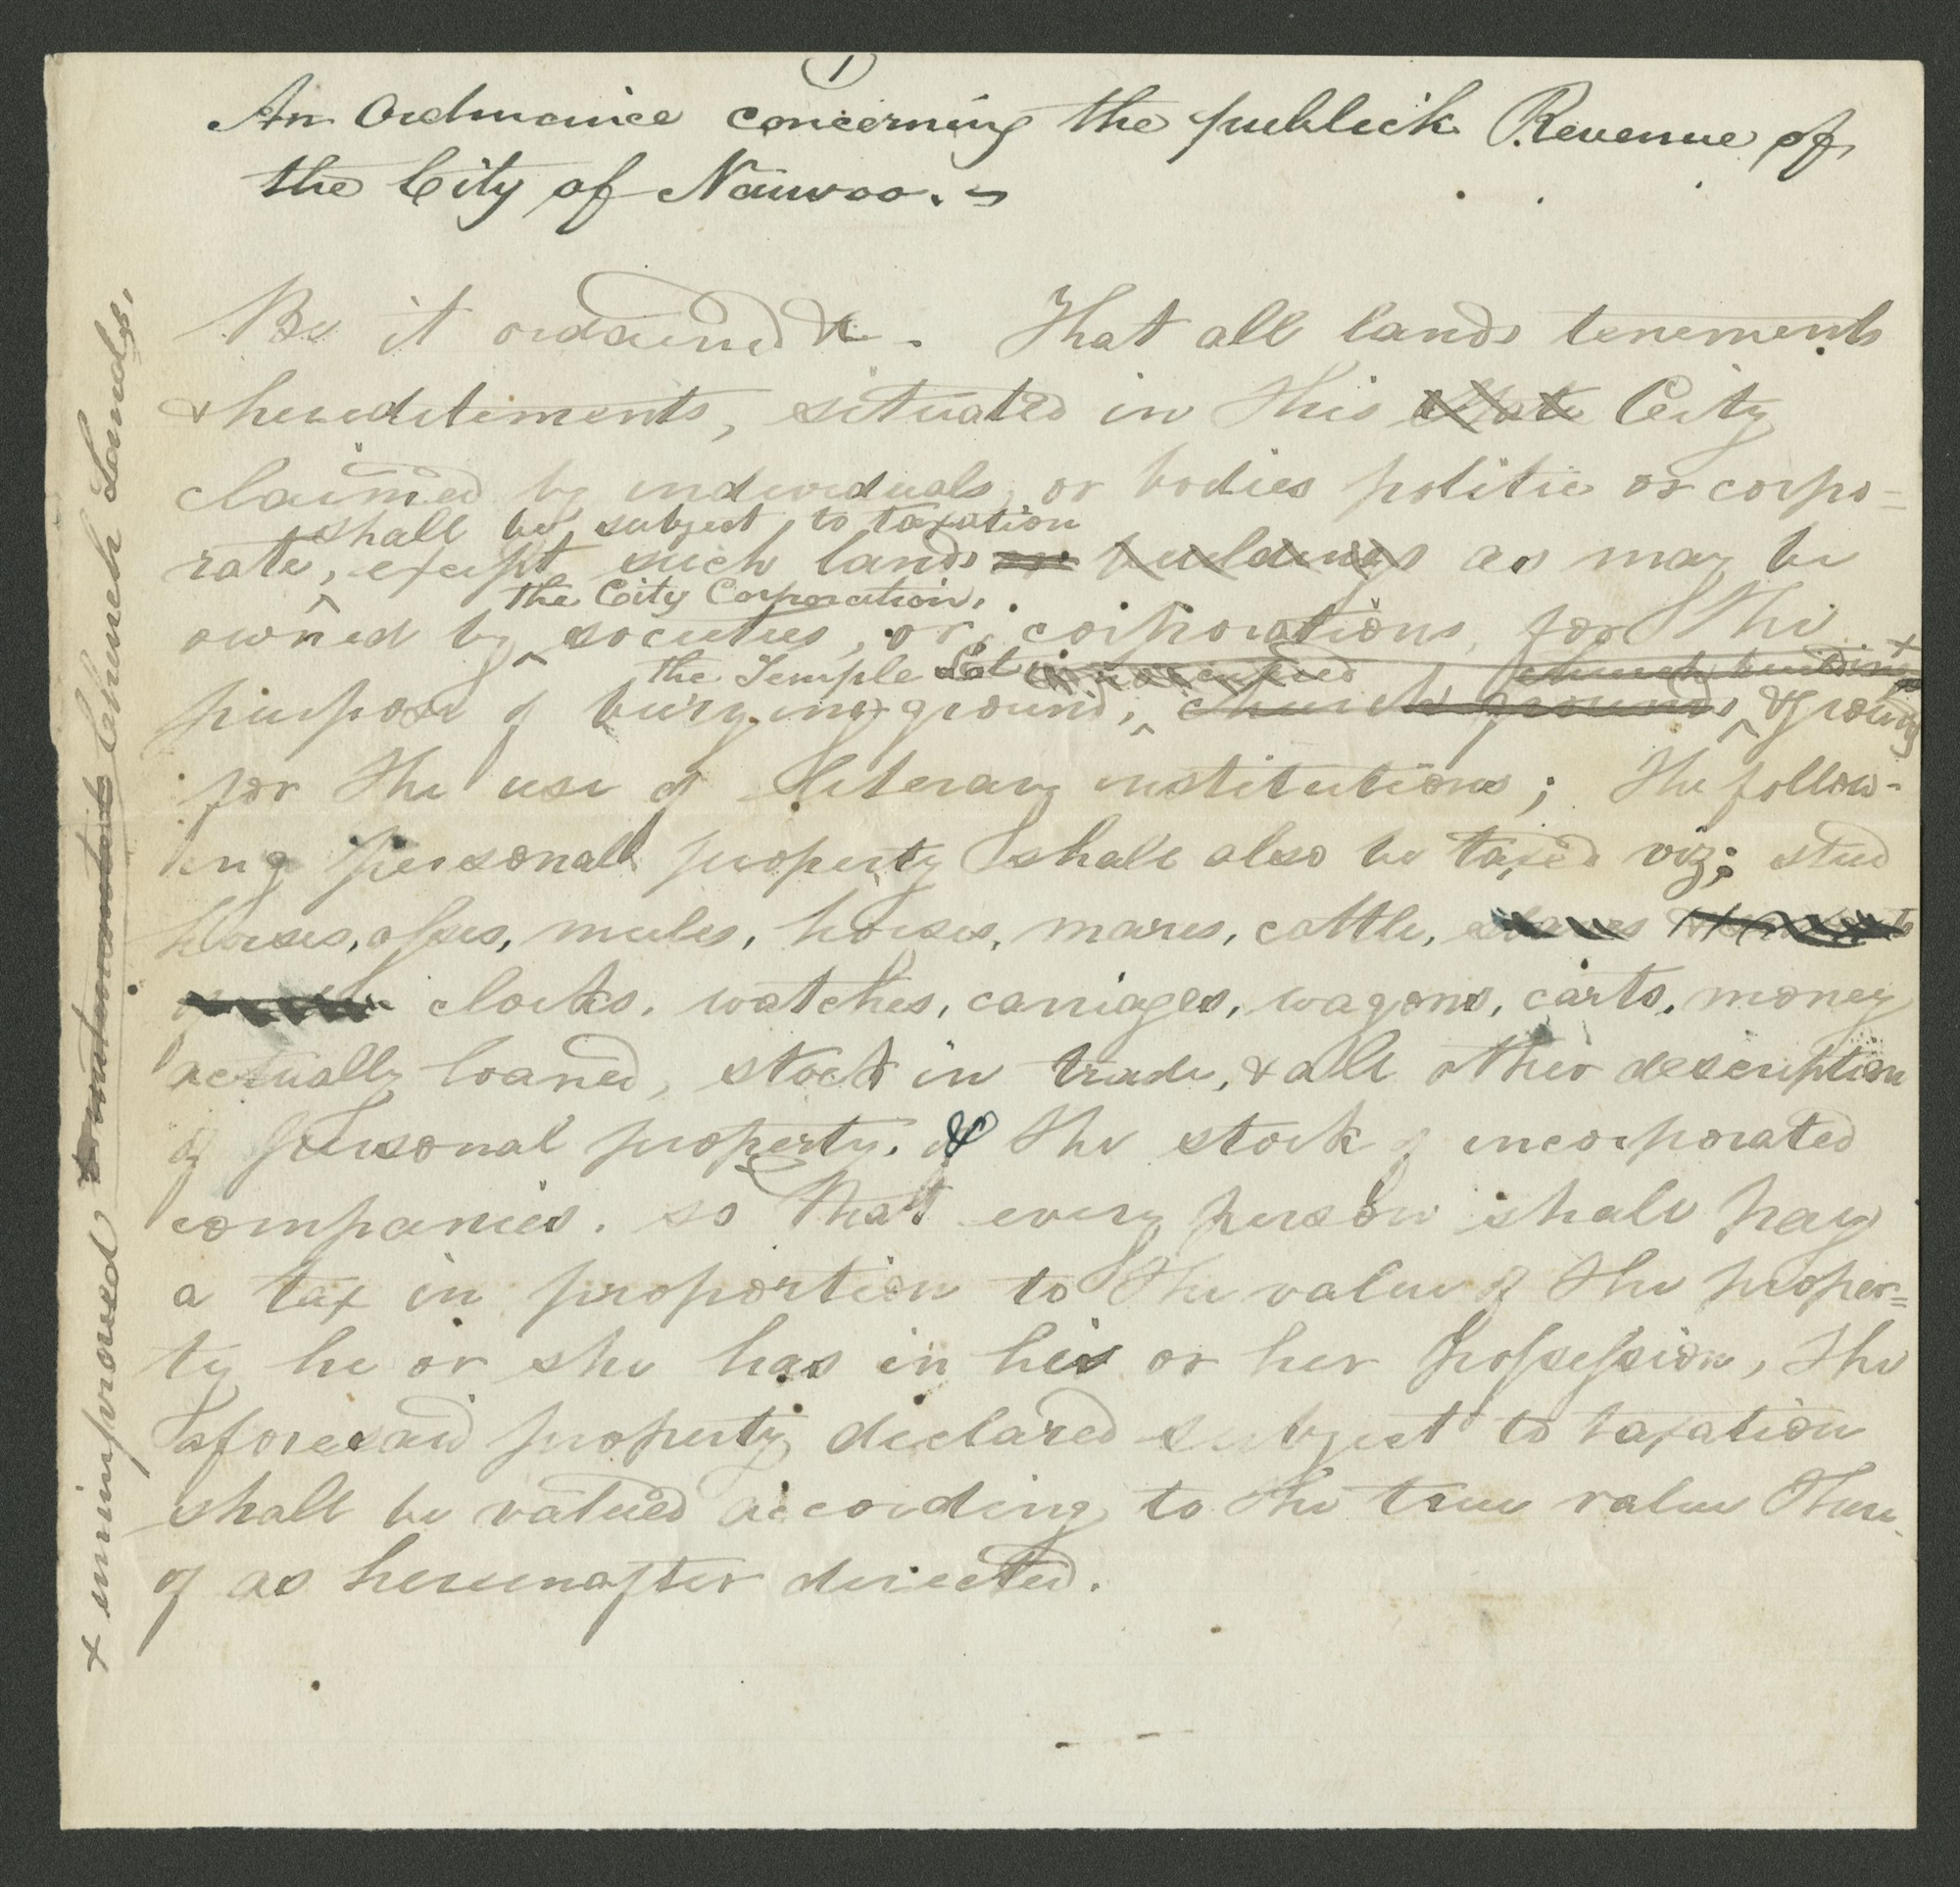 1
An Ordinance concerning the publick Revenue of
the City of Nauvoo.
Be it ordained &c. That all lands tenements
& hereditements, situated in this State City
claimed by individuals, or bodies politic or corpo=
shall be subject, to taxation
rate, except such lands or buildings as may be
the City Corporation,
owned by societies, or, corporations, for the
the Temple Lot church buildings +
purpose of burying ground, church grounds & grounds
for the use of literary institutions; The follow-
ing personal property shall also be taxed viz; stud
horses, asses, mules, horses, mares, cattle,
clocks, watches, carriages, wagons, carts, money
actually loaned, stock in trade, & all other description
of personal property. & the stock of incorporated
companies. so that every person shall pay
a tax in proportion to the value of the proper=
ty he or she has in his or her possession, the
aforesaid property declared subject to taxation
shall be valued according to the true value there-
of as hereinafter directed.
+ unimproved Church Lands,